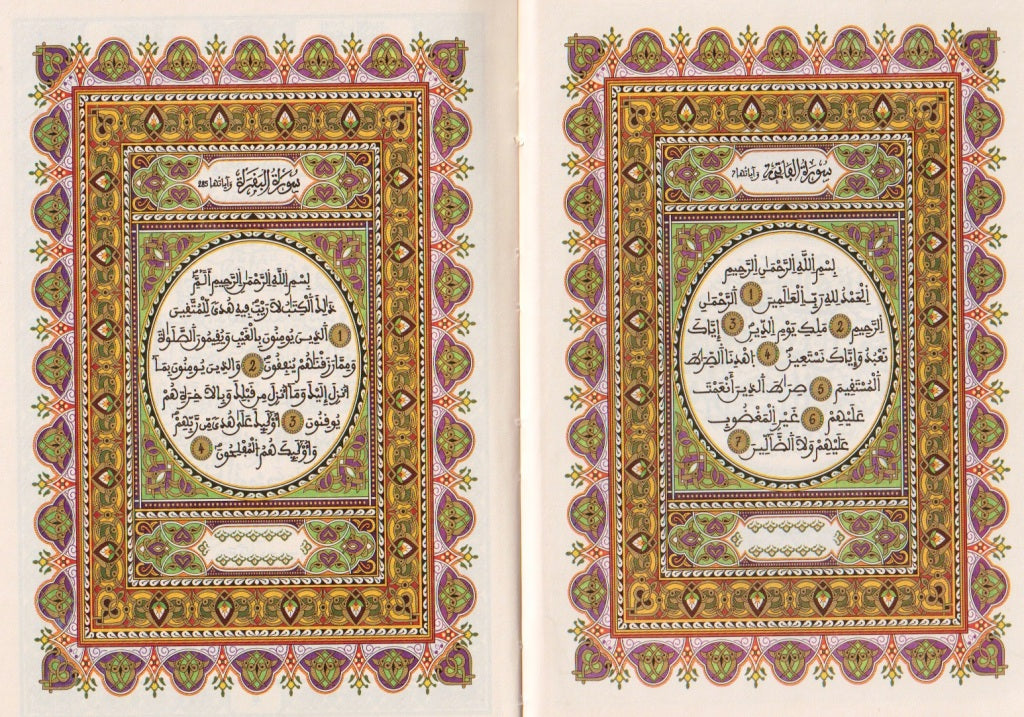 سُورَةُ الْفَاتِحَةِ وآياتها 7
بِسْمِ اللَّهِ الرَّحْمَٰنِ الرَّحِيمِ
الْحَمْدُ لِلهِ رَبِّ الْعَٰلَمِينَ 1 الرَّحْمَٰنِ
الرَّحِيمِ 2 مَلِكِ يَوْمِ الدِّينِ 3 إِيَّاكَ
نَعْبُدُ وَإِيَّاكَ نَسْتَعِينُ 4 اهْدِنَا الصِّرَٰطَ
الْمُسْتَقِيمَ 5 صِرَٰطَ الَّذِينَ أَنْعَمْتَ
عَلَيْهِمْ 6 غَيْرِ الْمَغْضُوبِ
عَلَيْهِمْ وَلَا الضَّآلِّينَ 7
سُورَةُ الْبَقَرَةِ وآياتها 285
بِسْمِ اللَّهِ الرَّحْمَٰنِ الرَّحِيمِ أَلَمِّ
ذَٰلِكَ الْكِتَٰبُ لَا رَيْبَ فِيهِ هُدىً لِّلْمُتَّقِينَ
1 الَّذِينَ يُومِنُونَ بِالْغَيْبِ وَيُقِيمُونَ الصَّلَوٰةَ
وَمِمَّا رَزَقْنَٰهُمْ يُنفِقُونَ 2 وَالَّذِينَ يُومِنُونَ بِمَآ
أُنزِلَ إِلَيْكَ وَمَآ أُنزِلَ مِن قَبْلِكَ وَبِالَاخِرَةِ هُمْ
يُوقِنُونَ 3 أُوْلَٰٓئِكَ عَلَىٰ هُدىً مِّن رَّبِّهِمْ
وَأُوْلَٰٓئِكَ هُمُ الْمُفْلِحُونَ 4